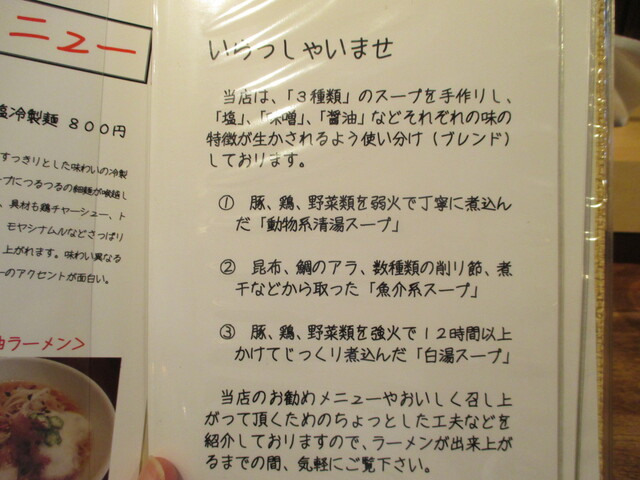 ニュー
塩冷製麺 ８００円
すっきりとした味わいの冷製
プにつるつるの細麺が喉越し
、具材も鶏チャーシュー、ト
モヤシナムルなどさっぱり
上がれます。味わい異なる
ーのアクセントが面白い。
油ラーメン>
いらっしゃいませ
当店は、「３種類」のスープを手作りし、
「塩」、「味噌」、「醤油」などそれぞれの味の
特徴が生かされるよう使い分け（ブレンド）
しております。
① 豚、鶏、野菜類を弱火で丁寧に煮込ん
だ「動物系清湯スープ」
② 昆布、鯛のアラ、数種類の削り節、煮
干などから取った「魚介系スープ」
③ 豚、鶏、野菜類を強火で１２時間以上
かけてじっくり煮込んだ「白湯スープ」
当店のお勧めメニューやおいしく召し上
がって頂くためのちょっとした工夫などを
紹介しておりますので、ラーメンが出来上が
るまでの間、気軽にご覧下さい。